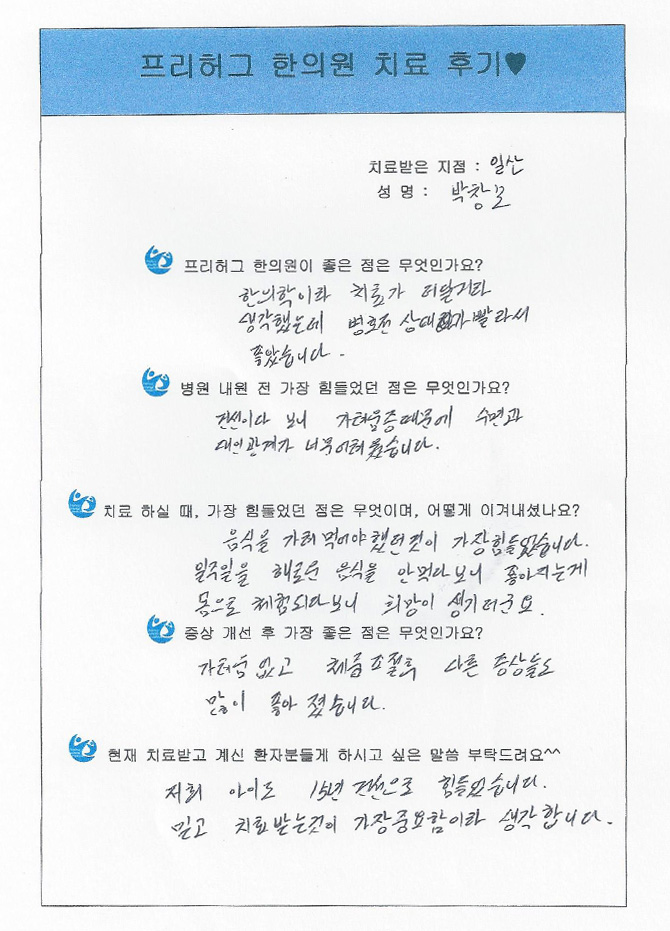 프리허그 한의원 치료 후기♥
치료받은 지점 : 일산
성 명 : 박창모
프리허그 한의원이 좋은 점은 무엇인가요?
한의학이라 치료가 더딜거라
생각했는데 병호전 상태가 빨라서
좋았습니다.
병원 내원 전 가장 힘들었던 점은 무엇인가요?
건선이다 보니 가려움증때문에 수면과
대인관계가 너무어려웠습니다.
치료 하실 때, 가장 힘들었던 점은 무엇이며, 어떻게 이겨내셨나요?
음식을 가려먹어야했던것이 가장힘들었습니다.
일주일을 해로운 음식을 안먹다보니 좋아지는게
몸으로 체험되다보니 희망이 생기더군요.
증상 개선 후 가장 좋은 점은 무엇인가요?
가려움 없고 체중조절후 다른 증상들도
많이 좋아 졌습니다.
현재 치료받고 계신 환자분들게 하시고 싶은 말씀 부탁드려요^^
저희 아이도 15년 건선으로 힘들었습니다.
믿고 치료받는것이 가장중요함이라 생각합니다.